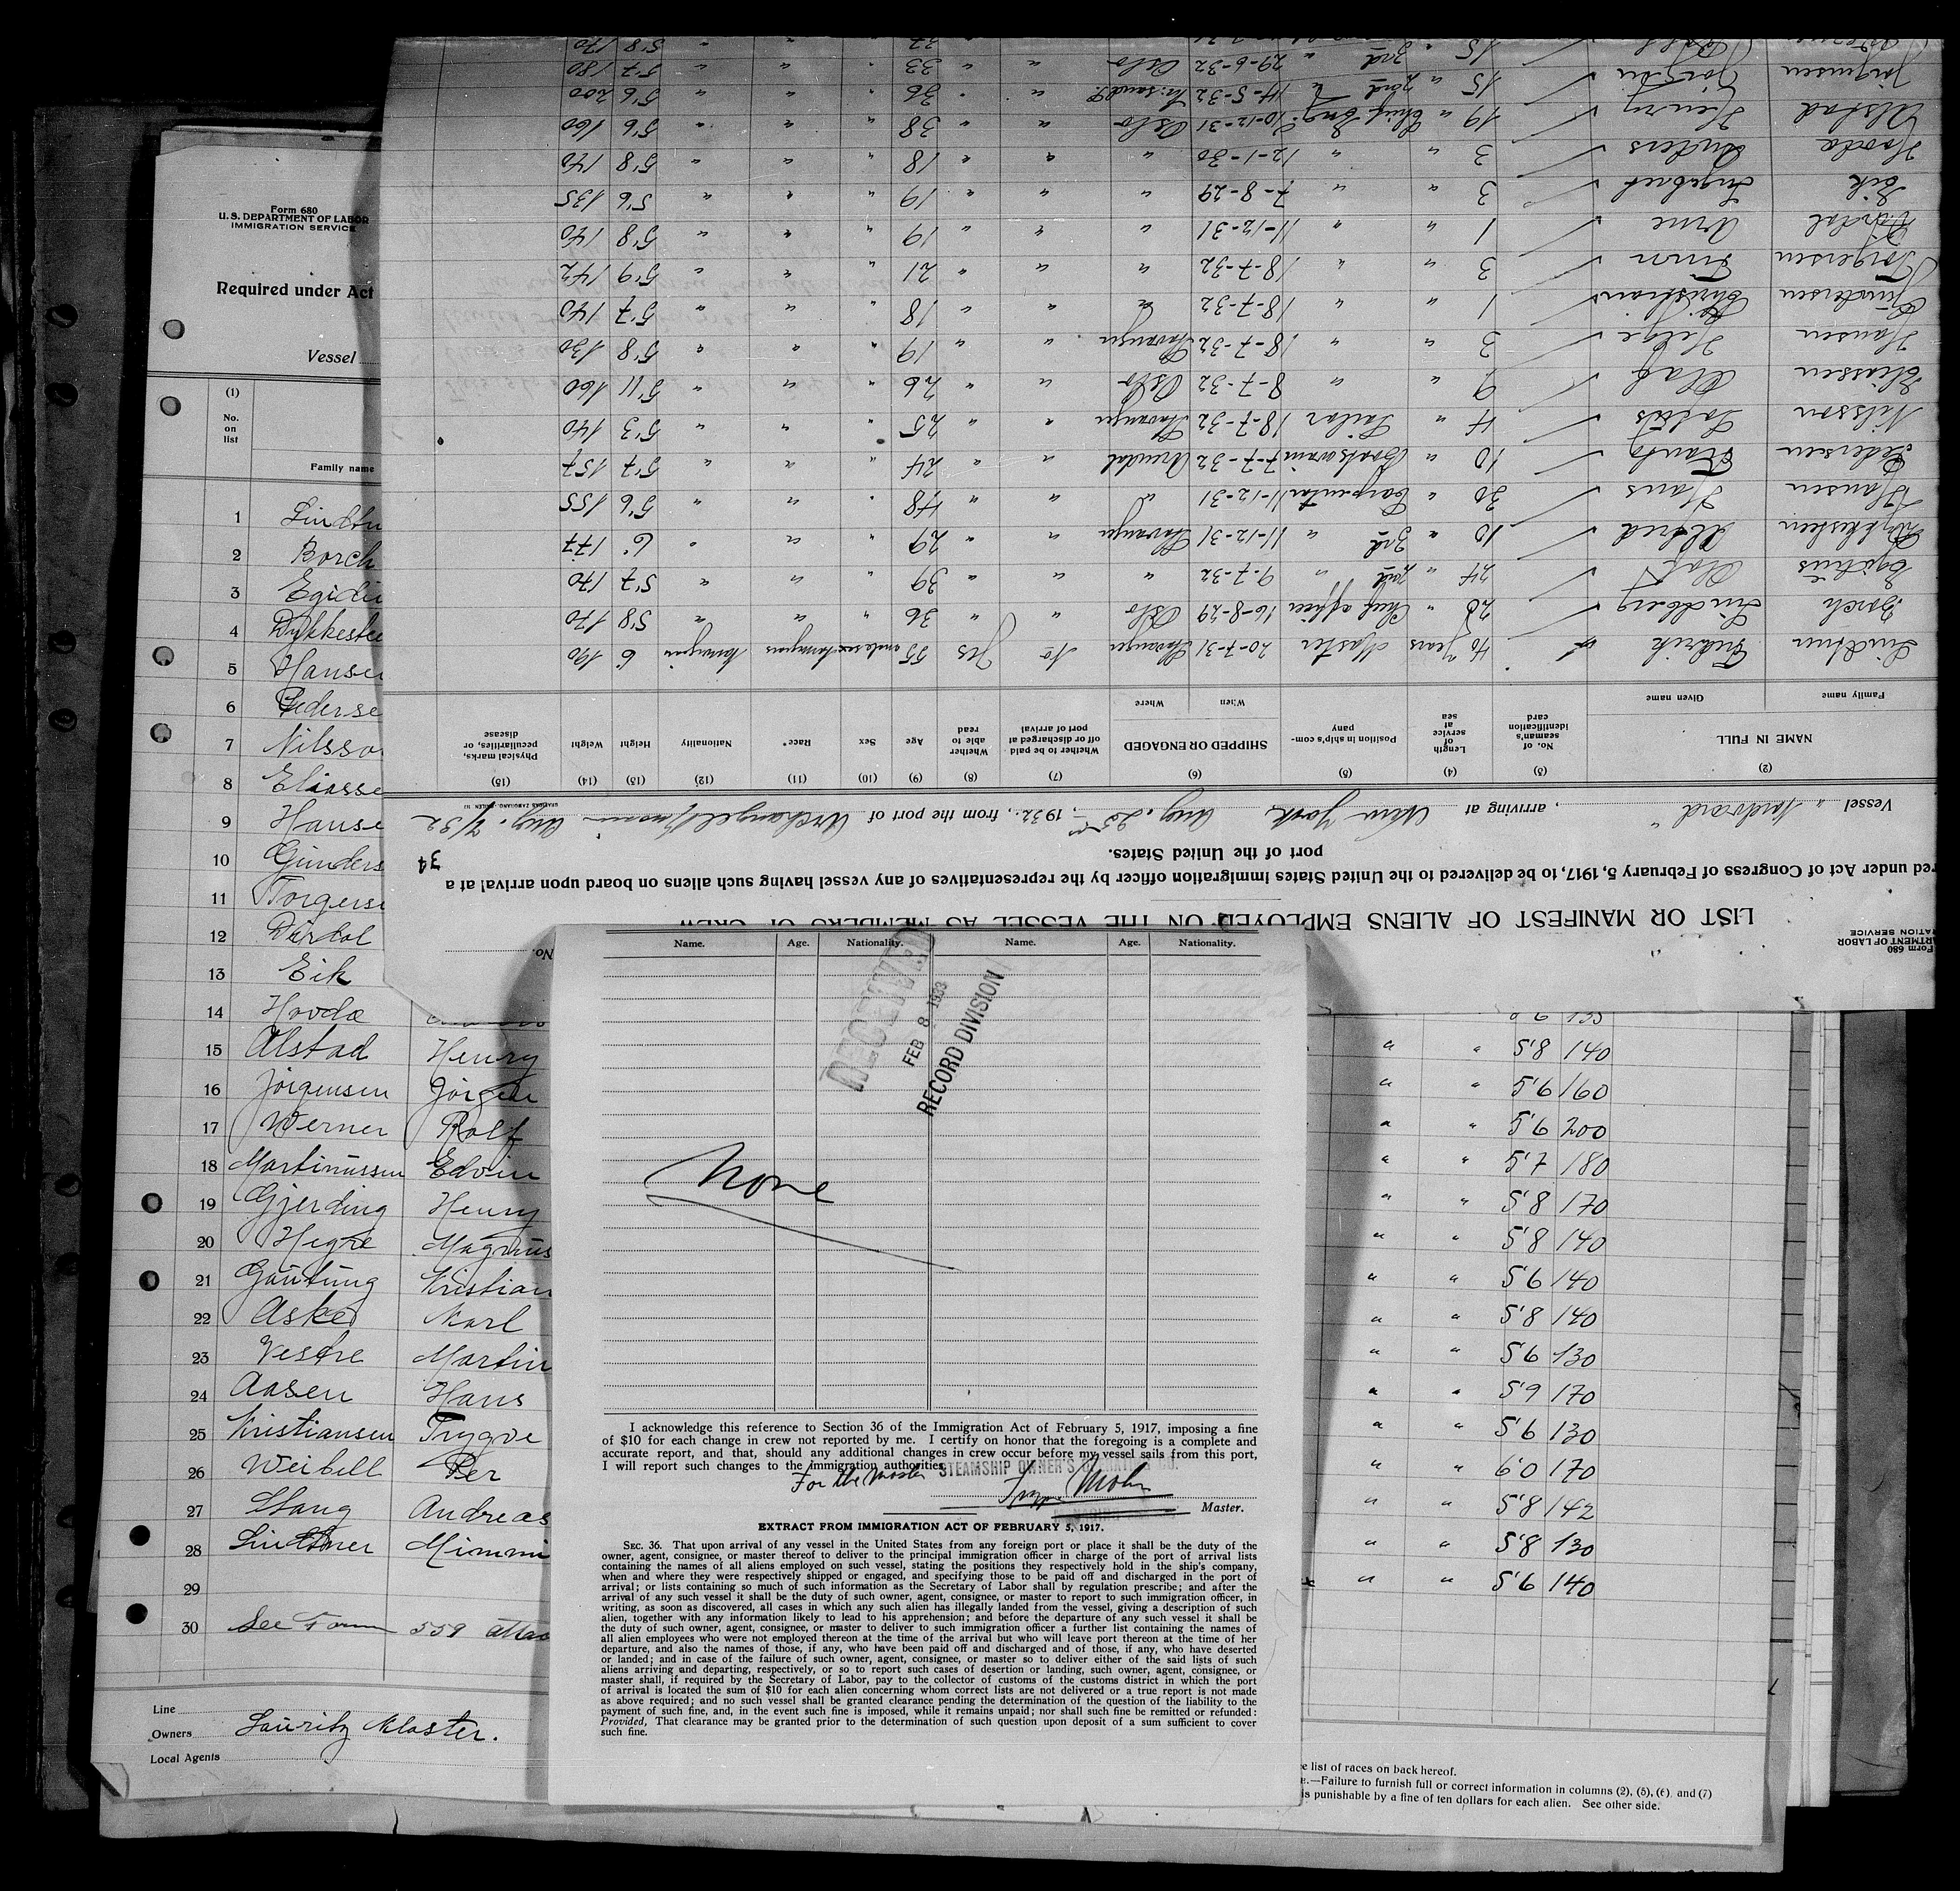 Form 680
U. S. DEPARTMENT OF LABOR
IMMIGRATION SERVICE
Required under Act
Vessel
(1)
No. on list
Family name
1 Lindtn
2 Borch
3 Egidiu
4 Dykkestee
5 Hanse
6 Pederse
7 Nilsso
8 Eliasse
9 Hanse
10 Gunders
11 Torgerse
12 Dirdal
13 Eik
14 Hovda
15 Alstad Henry
16 Jörgensen Jörgen
17 Werner Rolf
18 Martinussen Edvin
19 Gjerding Henry
20 Hegre Magnus
21 Gautung Kristian
22 Asker Karl
23 Vestre Martin
24 Aasen Hans
25 Kristiansen Trygve
26 Weibell Per
27 Stang Andreas
28 Lindtner Mimmi
29
30 See Form 559 attac
Line
Owners Lauritz Kloster.
Local Agents
5'8 140
5'6 160
5'6 200
5'7 180
5'8 170
5'8 140
5'6 140
5'8 140
5'6 130
5'9 170
5'6 130
6'0 170
5'8 142
5'8 130
5'6 140
e list of races on back hereof.
e.—Failure to furnish full or correct information in columns (2), (5), (6) and (7)
is punishable by a fine of ten dollars for each alien. See other side.
Form 680
ARTMENT OF LABOR
RATION SERVICE
No.
LIST OR MANIFEST OF ALIENS EMPLOYED ON THE VESSEL AS MEMBERS OF CREW
red under Act of Congress of February 5, 1917, to be delivered to the United States immigration officer by the representatives of any vessel having such aliens on board upon arrival at a
port of the United States. 34
Vessel "Nordvard", arriving at New York Aug. 25th, 1932, from the port of Archangel Aug. 7/32
(2) (3) (4) (5) (6) (7) (8) (9) (10) (11) (12) (13) (14) (15)
NAME IN FULL
Family name Given name
No. of seaman's identification card
Length of service at sea
Position in ship's company
SHIPPED OR ENGAGED
When Where
Whether to be paid off or discharged at port of arrival
Whether able to read
Age
Sex
Race*
Nationality
Height
Weight
Physical marks, peculiarities, or disease
Lindtner Fredrik 40 years Master 20-7-31 Stavanger No Yes 55 male Norwegian Norwegian 6 190
Borch Lindberg 20 " Chief officer 16-8-29 Oslo " " 36 " " " 5'8 170
Egidius Olaf 24 " 2nd " 9-7-32 " " " 39 " " " 5'7 170
Dykkesteen Alfred 10 " 3rd " 11-12-31 Stavanger " " 29 " " " 6' 177
Hansen Hans 30 " Carpenter 11-12-31 " " " 48 " " " 5'6 155
Pedersen Frantz 10 " Boatswain 7-7-32 Arendal " " 24 " " " 5'7 157
Nilsson 4 " Sailor 18-7-32 Stavanger " " 25 " " " 5'3 140
Eliassen Olaf 9 " " 8-7-32 Oslo " " 26 " " " 5'11 160
Hansen Helge 3 " " 18-7-32 Stavanger " " 19 " " " 5'8 130
Gundersen Christian 1 " " 18-7-32 " " " 18 " " " 5'7 140
Torgersen Finn 3 " " 18-7-32 " " " 21 " " " 5'9 142
Dirdal Arne 1 " " 11-12-31 " " " 19 " " " 5'8 140
Eik Ingebret 3 " " 7-8-29 " " " 19 " " " 5'6 135
Hovda Anders 3 " " 12-1-30 " " " 18 " " " 5'8 140
Alstad Henry 19 " Chief Eng. 10-12-31 Oslo " " 38 " " " 5'6 160
Jörgensen Jörgen 15 " 2nd " 14-5-32 Kr.sand S " " 36 " " " 5'6 200
15 " 3rd " 29-6-32 Oslo " " 33 " " " 5'7 180
37 5'8 170
Name. Age. Nationality. Name. Age. Nationality.
RECEIVED
FEB 8 1933
RECORD DIVISION
None
I acknowledge this reference to Section 36 of the Immigration Act of February 5, 1917, imposing a fine
of $10 for each change in crew not reported by me. I certify on honor that the foregoing is a complete and
accurate report, and that, should any additional changes in crew occur before my vessel sails from this port,
I will report such changes to the immigration authorities.
For the Master
STEAMSHIP OWNER'S
Master.
EXTRACT FROM IMMIGRATION ACT OF FEBRUARY 5, 1917.
SEC. 36. That upon arrival of any vessel in the United States from any foreign port or place it shall be the duty of the
owner, agent, consignee, or master thereof to deliver to the principal immigration officer in charge of the port of arrival lists
containing the names of all aliens employed on such vessel, stating the positions they respectively hold in the ship's company,
when and where they were respectively shipped or engaged, and specifying those to be paid off and discharged in the port of
arrival; or lists containing so much of such information as the Secretary of Labor shall by regulation prescribe; and after the
arrival of any such vessel it shall be the duty of such owner, agent, consignee, or master to report to such immigration officer, in
writing, as soon as discovered, all cases in which any such alien has illegally landed from the vessel, giving a description of such
alien, together with any information likely to lead to his apprehension; and before the departure of any such vessel it shall be
the duty of such owner, agent, consignee, or master to deliver to such immigration officer a further list containing the names of
all alien employees who were not employed thereon at the time of the arrival but who will leave port thereon at the time of her
departure, and also the names of those, if any, who have been paid off and discharged and of those, if any, who have deserted
or landed; and in case of the failure of such owner, agent, consignee, or master so to deliver either of the said lists of such
aliens arriving and departing, respectively, or so to report such cases of desertion or landing, such owner, agent, consignee, or
master shall, if required by the Secretary of Labor, pay to the collector of customs of the customs district in which the port
of arrival is located the sum of $10 for each alien concerning whom correct lists are not delivered or a true report is not made
as above required; and no such vessel shall be granted clearance pending the determination of the question of the liability to the
payment of such fine, and, in the event such fine is imposed, while it remains unpaid; nor shall such fine be remitted or refunded:
Provided, That clearance may be granted prior to the determination of such question upon deposit of a sum sufficient to cover
such fine.